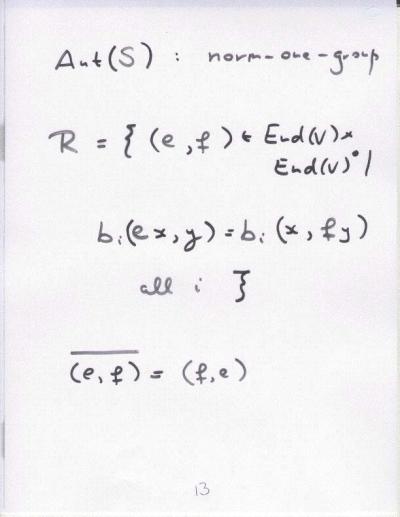 Aut(S) : norm-one-group
R = { (e, f) ∈ End(V) ×
End(V)° |
bᵢ(ex, y) = bᵢ(x, fy)
all i }
\overline{(e, f)} = (f, e)
13